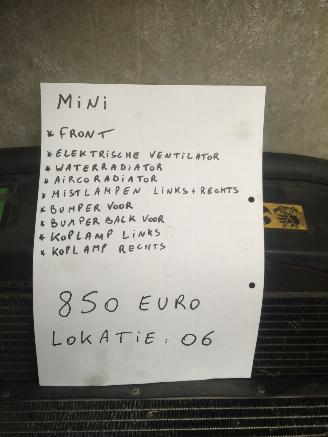 MINI
* FRONT
* ELEKTRISCHE VENTILATOR
* WATERRADIATOR
* AIRCORADIATOR
* MISTLAMPEN LINKS + RECHTS
* BUMPER VOOR
* BUMPER BALK VOOR
* KOPLAMP LINKS
* KOPLAMP RECHTS
850 EURO
LOKATIE: 06